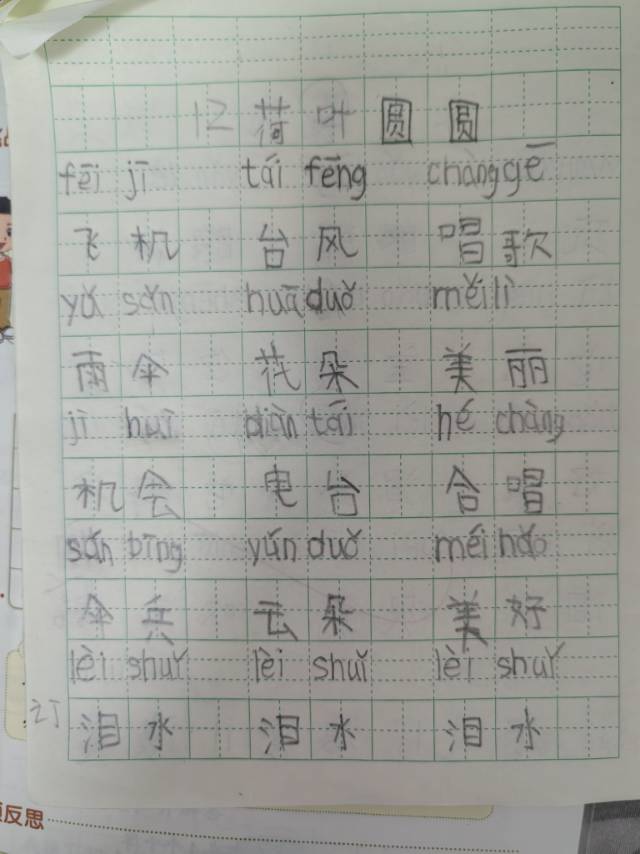 12 荷叶圆圆
fēi jī tái fēng chàng gē
飞机 台风 唱歌
yǔ sǎn huā duǒ měi lì
雨伞 花朵 美丽
jī huì diàn tái hé chàng
机会 电台 合唱
sǎn bīng yún duǒ měi hǎo
伞兵 云朵 美好
lèi shuǐ lèi shuǐ lèi shuǐ
订 泪水 泪水 泪水
反思